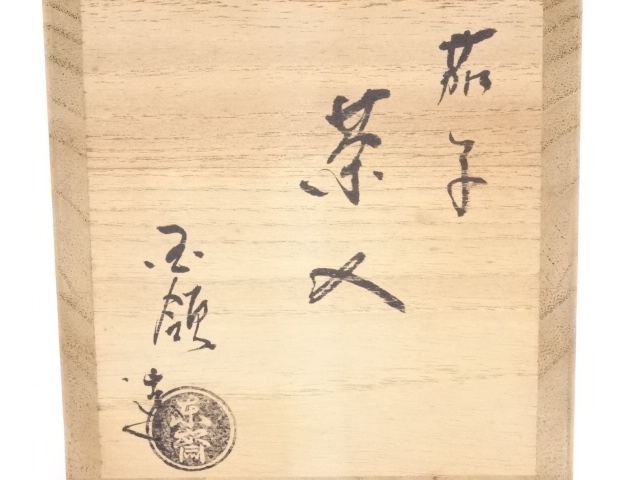 茄子
茶入
玉領造